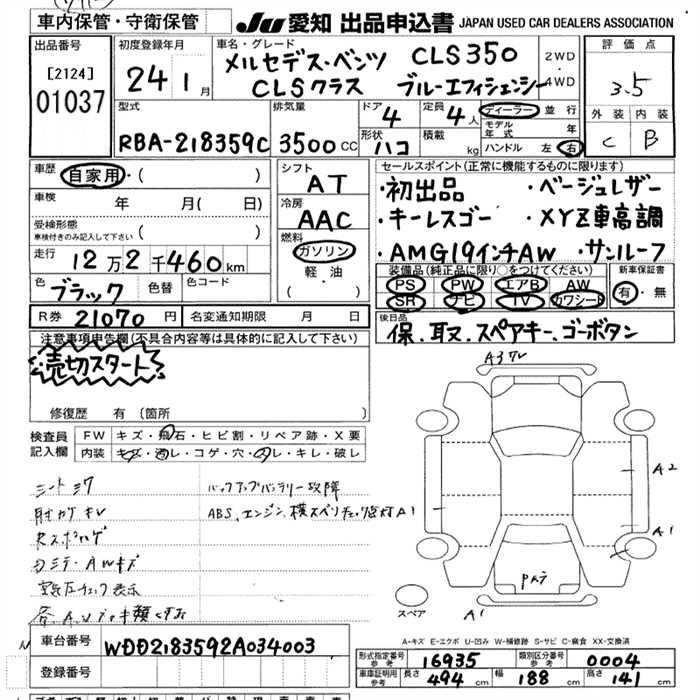 車内保管・守衛保管
JU 愛知 出品申込書 JAPAN USED CAR DEALERS ASSOCIATION
出品番号
[2124]
01037
初度登録年月
24 1月
車名・グレード
メルセデス・ベンツ CLS350
CLSクラス ブルーエフィシェンシー
2WD
・
4WD
評価点
3.5
外装 内装
C B
型式
RBA-218359C
排気量
3500 CC
ドア
4
定員
4人
形状
ハコ
積載
kg
ディーラー 並行
モデル年式 年
ハンドル 左 右
車歴
自家用・( )
車検 年 月( 日)
受検形態
車検付きのみ記入して下さい ( )
走行 12万2千460km
色 ブラック 色替 色コード
シフト
AT
冷房
AAC
燃料
ガソリン
軽・油
( )
セールスポイント(正常に機能するものに限ります)
・初出品 ・ベージュレザー
・キーレスゴー ・XYZ車高調
・AMG19インチAW ・サンルーフ
装備品(純正品に限り○をつけてください)
PS PW エアB AW
SR ナビ TV カワシート
新車保証書
有・無
R券 21070円 名変通知期限 月 日
後日品
保、取、スペアキー、ゴーボタン
注意事項申告欄(不具合内容等は具体的に記入して下さい)
売切スタート
修復歴 有(箇所
検査員記入欄
FW キズ・飛石・ヒビ割・リペア跡・X要
内装 キズ・汚レ・コゲ・穴・スレ・キレ・破レ
シートシワ
バックアップバッテリー故障
肘カケキレ
ABS、エンジン、横スベリチェック灯灯
Rスポハゲ
空気圧チェック表示
A3
A2
A1
A1
A1
スペア
A1
A-キズ E-エクボ U-凹み W-補修跡 S-サビ C-腐食 XX-交換済
車台番号 WDD2183592A034003
登録番号
形式指定番号
参考 16935
類別区分番号
参考 0004
車庫証明用
参考 長さ 494cm 幅 188cm 高さ 141cm